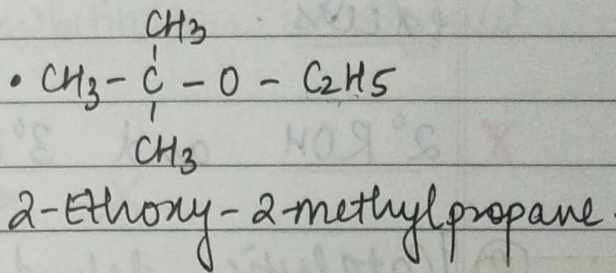 CH3
• CH3 - C - O - C2H5
CH3
2-Ethoxy-2-methylpropane.